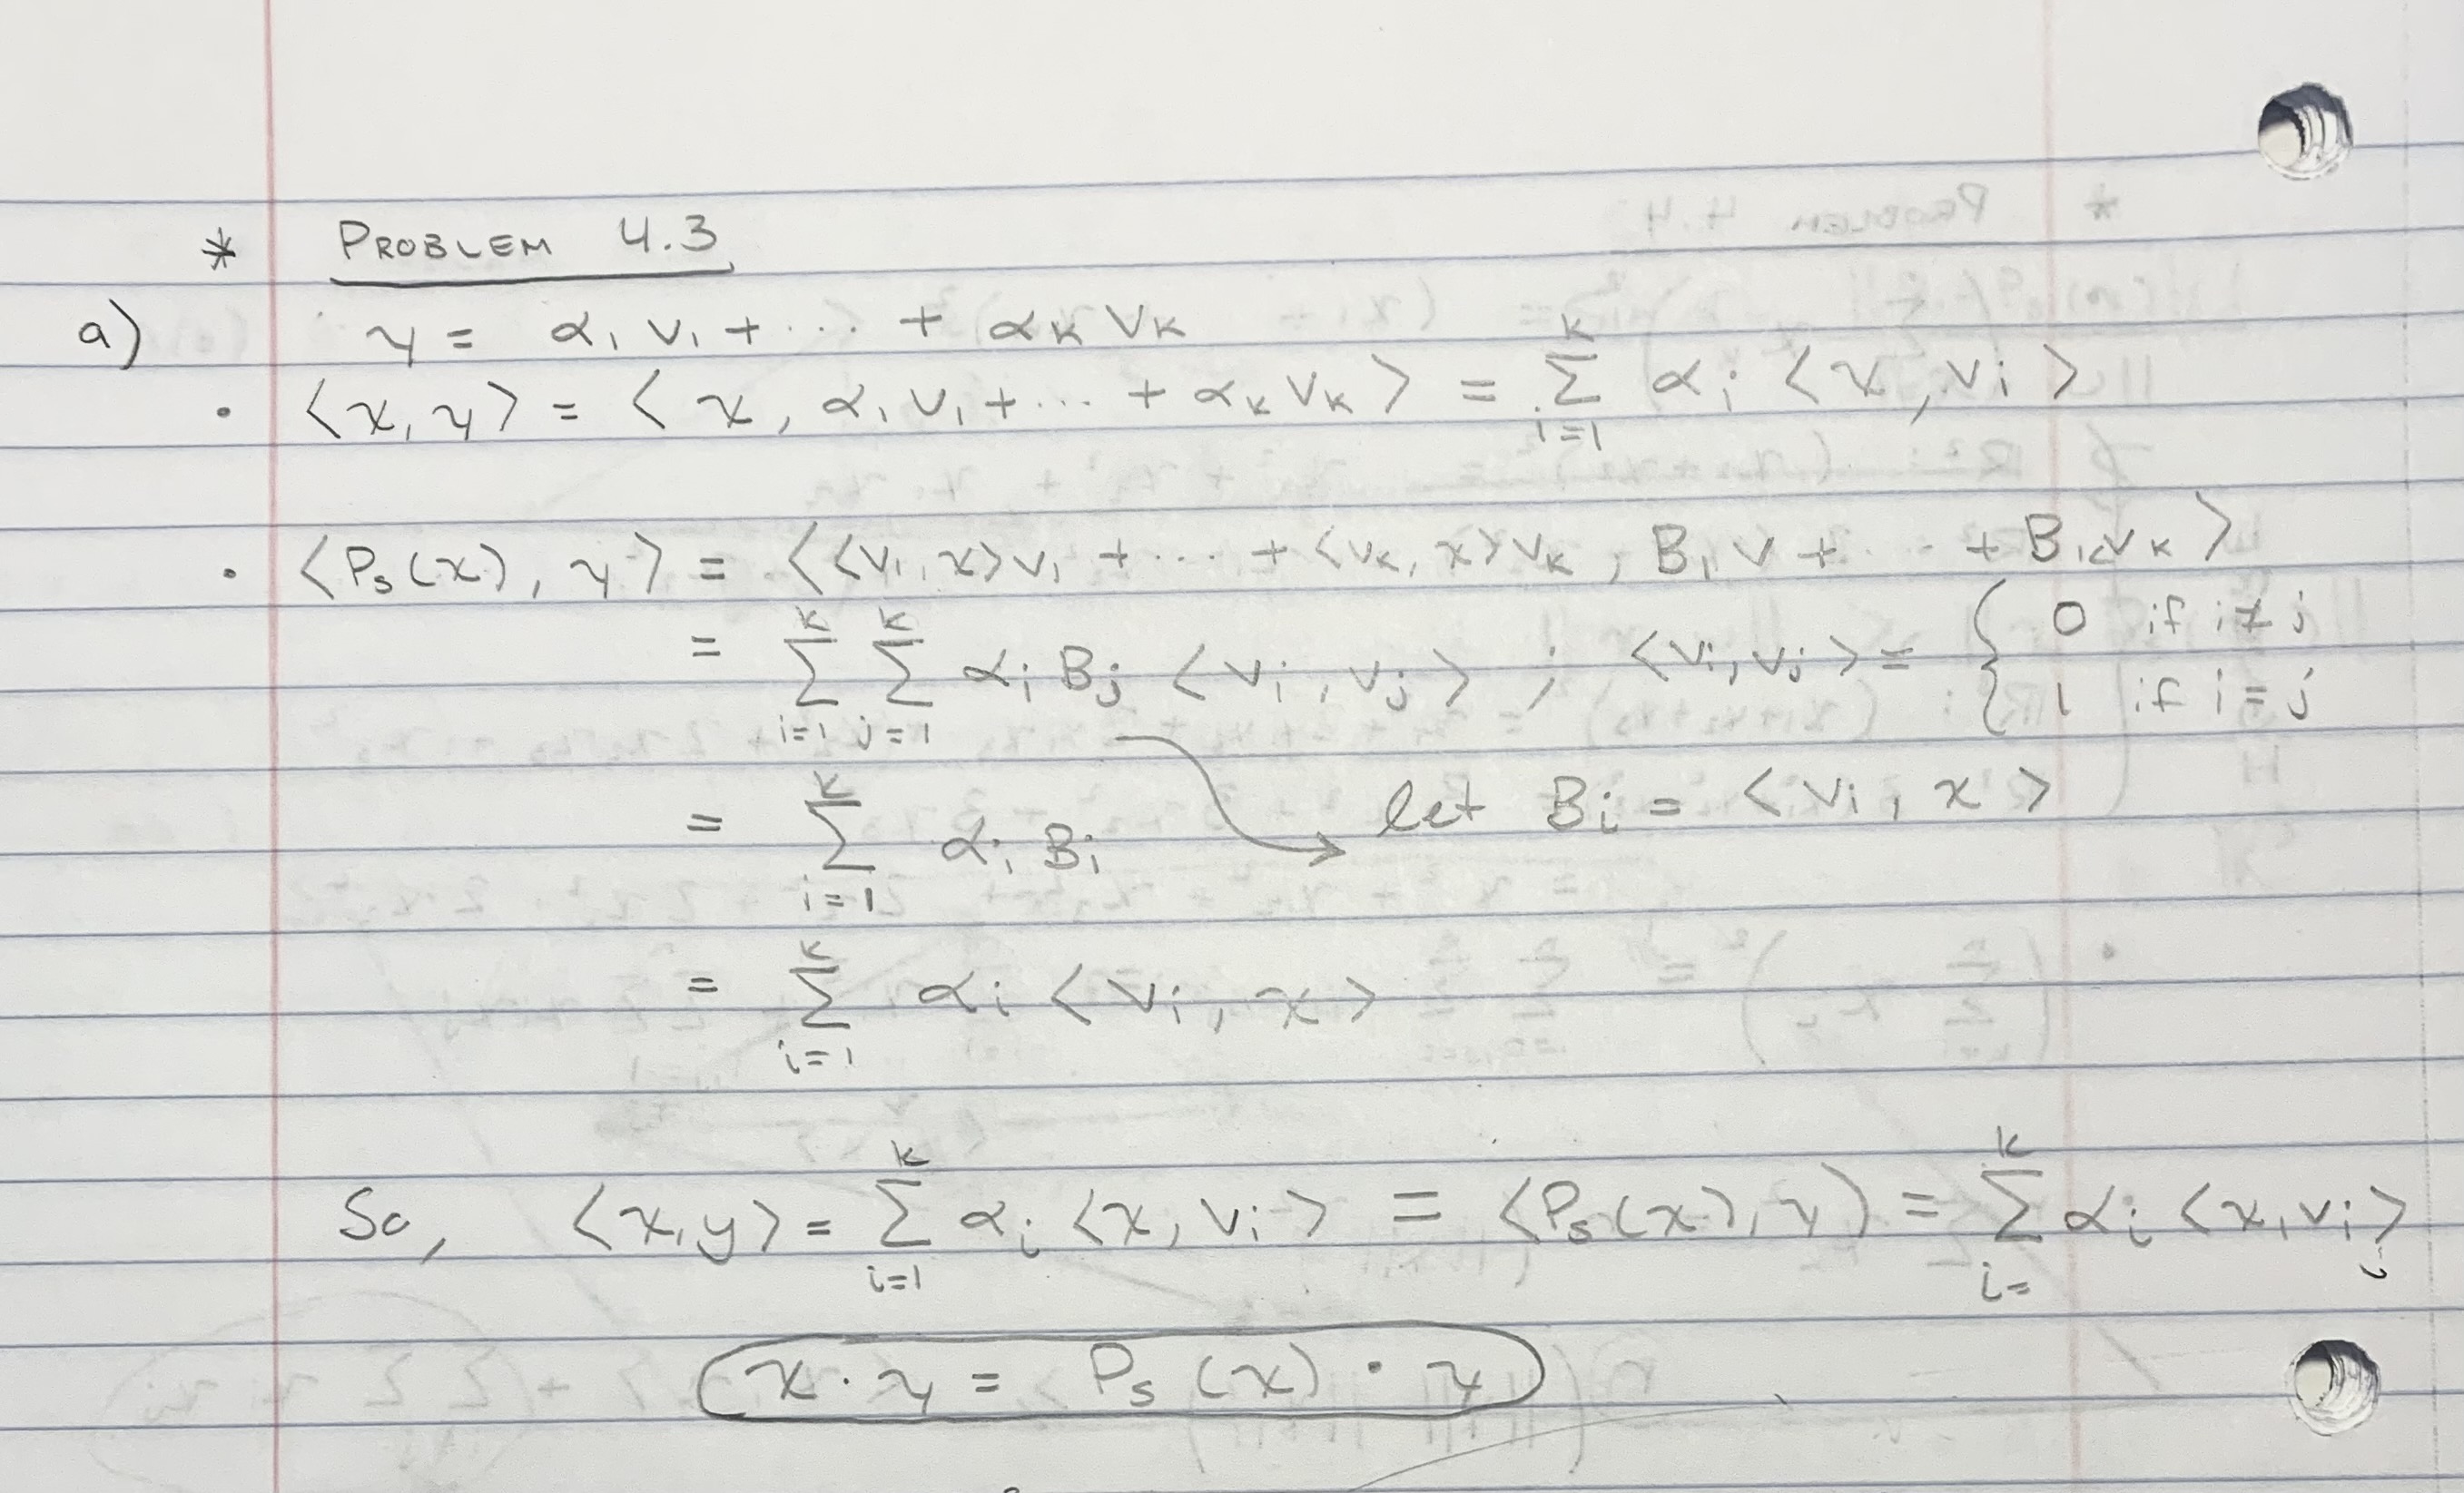 * PROBLEM 4.3
a) y = α₁ v₁ + ... + αₖ vₖ
• ⟨x, y⟩ = ⟨x, α₁ v₁ + ... + αₖ vₖ⟩ = Σ_{i=1}^{k} αᵢ ⟨x, vᵢ⟩
• ⟨Pₛ(x), y⟩ = ⟨⟨v₁, x⟩v₁ + ... + ⟨vₖ, x⟩vₖ, B₁ v + ... + Bₖ vₖ⟩
= Σ_{i=1}^{k} Σ_{j=1}^{k} αᵢ Bⱼ ⟨vᵢ, vⱼ⟩ ; ⟨vᵢ, vⱼ⟩ = { 0 if i ≠ j
1 if i = j
= Σ_{i=1}^{k} αᵢ Bᵢ → let Bᵢ = ⟨vᵢ, x⟩
= Σ_{i=1}^{k} αᵢ ⟨vᵢ, x⟩
So, ⟨x, y⟩ = Σ_{i=1}^{k} αᵢ ⟨x, vᵢ⟩ = ⟨Pₛ(x), y⟩ = Σ_{i=}^{k} αᵢ ⟨x, vᵢ⟩
x · y = Pₛ(x) · y